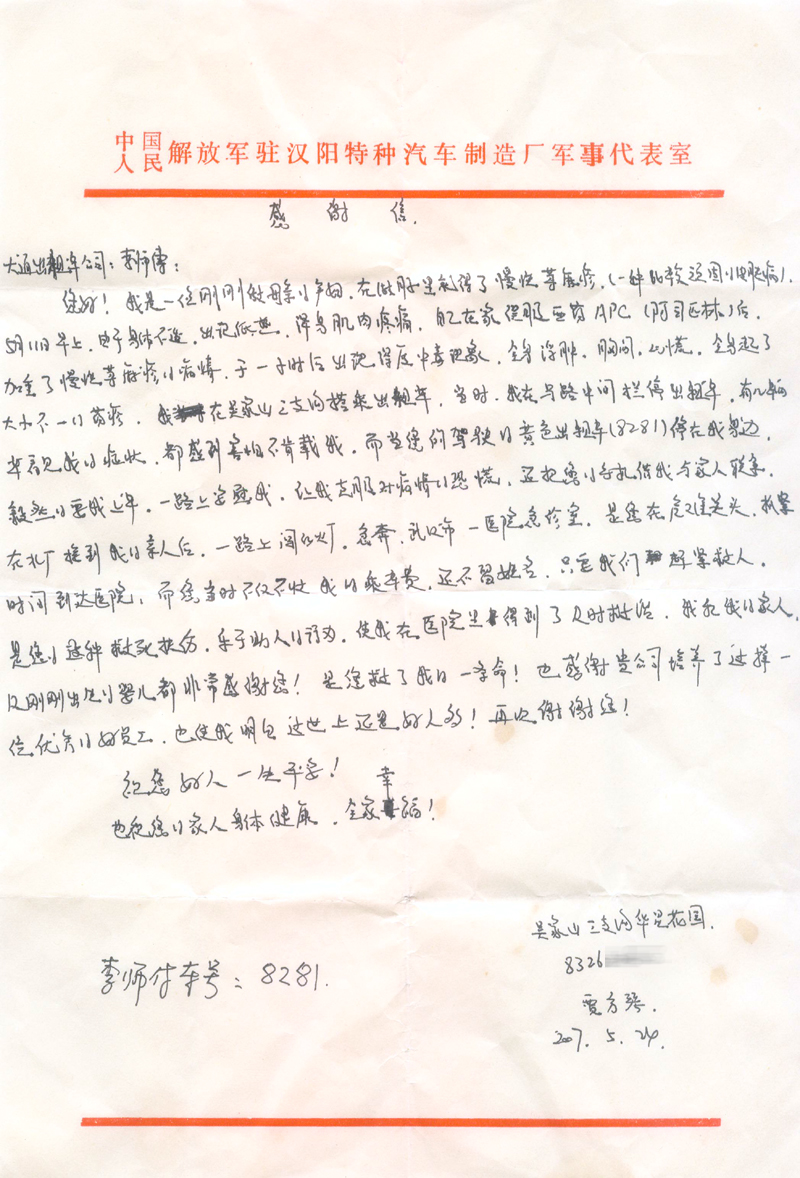 中国人民解放军驻汉阳特种汽车制造厂军事代表室
感谢信.
大通出租车公司:李师傅:
您好!我是一位刚刚做母亲的产妇.在做月子里就得了慢性荨麻疹,(一种比较顽固的皮肤病).
5月11日早上,由于身体不适,出现低热,浑身肌肉疼痛,自己在家里服西药APC(阿司匹林)后,
加重了慢性荨麻疹的病情,于一小时后出现得反中毒现象,全身浮肿、胸闷、心慌,全身起了
大小不一的荨疹,我在吴家山三支沟搭乘出租车,当时,我在马路中间拦停出租车,有几辆
车看见我的症状,都感到害怕不肯载我,而当您的驾驶的黄色出租车(8281)停在我身边,
毅然的要我上车,一路上安慰我,让我克服对病情的恐慌,还把您的手机借我与家人联系,
在 接到我的亲人后,一路上闯红灯,急奔 武汉市一医院急诊室,是您在危难关头,
时间到达医院,而您当时不仅不收我的乘车费,还不留姓名,只要我们 救人,
是您的这种救死扶伤,乐于助人的行为,使我在医院里得到了及时救治,我和我的家人,
及刚刚出生的婴儿都非常感谢您!是您救了我的一条命!也感谢贵公司培养了这样一
位优秀的好员工,也使我明白这世上还是好人多!再次谢谢您!
祝您好人一生平安!
也祝您的家人身体健康,全家幸福!
吴家山三支沟华星花园.
8326
李师付车号:8281.
贾方琴.
2007.5.24.